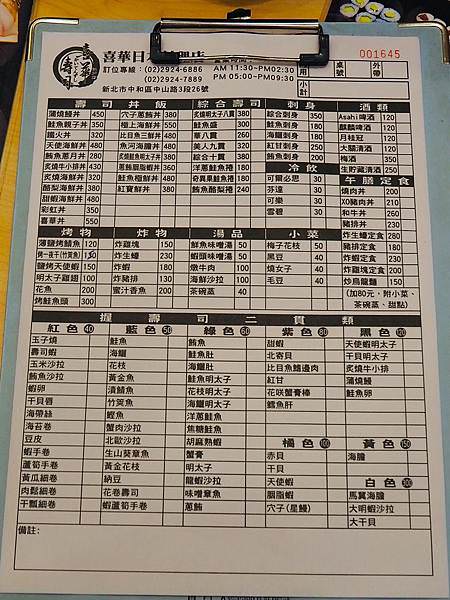 喜華日本
訂位專線：(02)2924-6886 AM 11:30~PM02:30
(02)2924-7889 PM 05:00~PM09:30
新北市中和區中山路3段26號
001645
用 桌號 外帶
小計
壽司丼飯 綜合壽司 刺身 酒類
蒲燒鰻丼 450 穴子蔥鮪丼 380 炙燒明太子八貫 380 綜合刺身 350 Asahi啤酒 120
鮭魚親子丼 350 極上海鮮丼 550 鮭魚盛 300 鮭魚刺身 180 麒麟啤酒 120
鐵火丼 320 比目魚三鮮丼 480 華八貫 260 海鱺刺身 200 月桂冠 120
天使海鮮丼 480 魚河海膽丼 480 美人九貫 320 紅甘刺身 250 大關清酒 120
鮪魚蔥月丼 280 炙燒鮭魚明太子丼 380 綜合十貫 380 鮪魚刺身 200 梅酒 350
炙燒牛小排丼 430 蔥鮪胭脂蝦丼 360 洋蔥鮭魚捲 180 冷飲 生貯藏清酒 250
炙燒海鮮丼 320 鮭魚極鮮丼 480 奇異果鮭魚捲 180 可爾必思 30 午膳定食
酪梨海鮮丼 350 紅寶鮮丼 380 鮪魚酪梨捲 240 芬達 30 燒肉丼 200
甜蝦海鮮丼 450 可樂 30 XO豬肉丼 210
彩虹丼 350 雪碧 30 和牛丼 260
喜華丼 550 豬排丼 230
烤物 炸物 湯品 小菜 炸生蠔定食 280
薄鹽烤鯖魚 120 炸雞塊 150 鮮魚味噌湯 50 梅子花枝 50 豬排定食 180
烤一夜干(竹莢魚) 150 炸生蠔 250 蝦頭味噌湯 50 黑豆 40 炸蝦定食 230
鹽烤天使蝦 150 炸蝦 180 燉牛肉 100 燒女子 40 炸雞塊定食 200
明太子雞翅 100 炸豬排 130 海鮮沙拉 100 毛豆 40 炒烏龍麵 150
花魚 200 蜜汁香魚 200 茶碗蒸 40 (加80元，附小菜、
烤鮭魚頭 300 茶碗蒸、甜點)
握壽司二貫類
紅色 40 藍色 50 綠色 60 紫色 80 黑色 120
玉子燒 鮭魚 鮪魚 甜蝦 天使蝦明太子
壽司蝦 海鱺 鮭魚肚 北寄貝 干貝明太子
玉米沙拉 花枝 海鱺肚 比目魚鰭邊肉 炙燒牛小排
鮪魚沙拉 黃金魚 鮭魚明太子 紅甘 蒲燒鰻
蝦卵 漬鯖魚 花枝明太子 花咲蟹膏棒 鮭魚卵
干貝唇 竹莢魚 海鱺明太子 鱈魚肝
海帶絲 鰹魚 洋蔥鮭魚
海苔卷 蟹肉沙拉 焦糖鮭魚
豆皮 北歐沙拉 胡麻熟蝦 橘色 100 黃色 150
蝦手卷 生山葵章魚 蟹膏 赤貝 海膽
蘆筍手卷 黃金花枝 明太子 干貝
黃瓜細卷 納豆 龍蝦沙拉 天使蝦 白色
肉鬆細卷 花卷壽司 味噌章魚 胭脂蝦 馬糞海膽
干瓢細卷 蝦蘆筍手卷 蔥鮪 穴子(星鰻) 大明蝦沙拉
大干貝
備註: